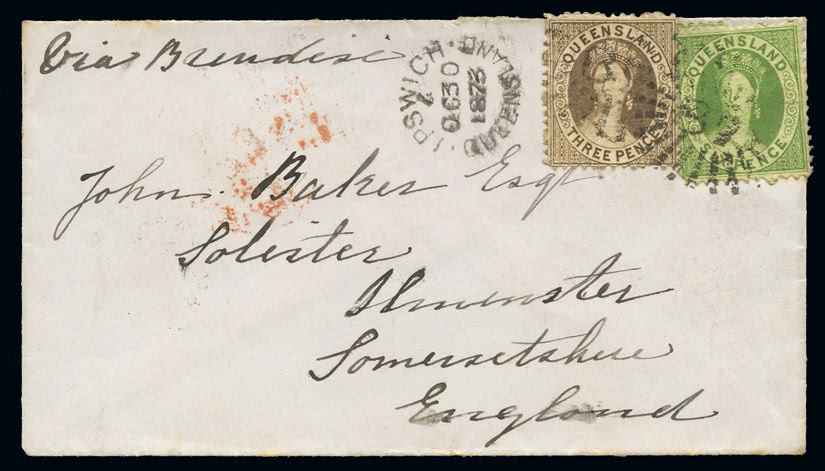 Via Brendisi
IPSWICH
OC30
1873
QUEENSLAND
QUEENSLAND
THREE PENCE
QUEENSLAND
SIX PENCE
John Baker Esqr
Solister
Ilmenster
Somersetshire
England